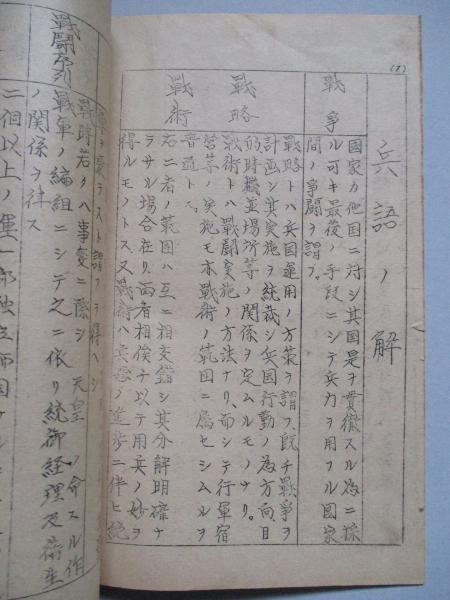 (1)
兵語ノ解
戰爭
国家カ他国ニ対シ其国是ヲ貫徹スル為ニ採
ル可キ最後ノ手段ニシテ兵力ヲ用フル国家
間ノ争闘ヲ謂フ
戰略
戰術
戰略トハ兵団運用ノ方策ヲ謂フ既チ戰爭ヲ
計画シ其実施ヲ統裁シ兵団行動ノ為方向、目
的時機並場所等ノ関係ヲ定ムルモノナリ。
戰術トハ戰闘実施ノ方法ナリ、而シテ行軍宿
営等ノ実施モ亦戰術ノ範囲ニ属セシムルヲ
普通トス
右二者ノ範囲ハ互ニ相交錯シ其分解明確ナ
ラサル場合在リ、両者相俟チ以テ用兵ノ妙ヲ
得ルモノトス又戰術ハ兵器ノ進歩ニ伴ヒ
戰闘序列
ヲ謂フヲ得ヘシ
戰時若クハ事変ニ際シ天皇ノ命スル作
戰軍ノ編組ニシテ之ニ依リ統御経理及衛生
ノ関係ヲ律ス
二個以上ノ軍一部独立師団